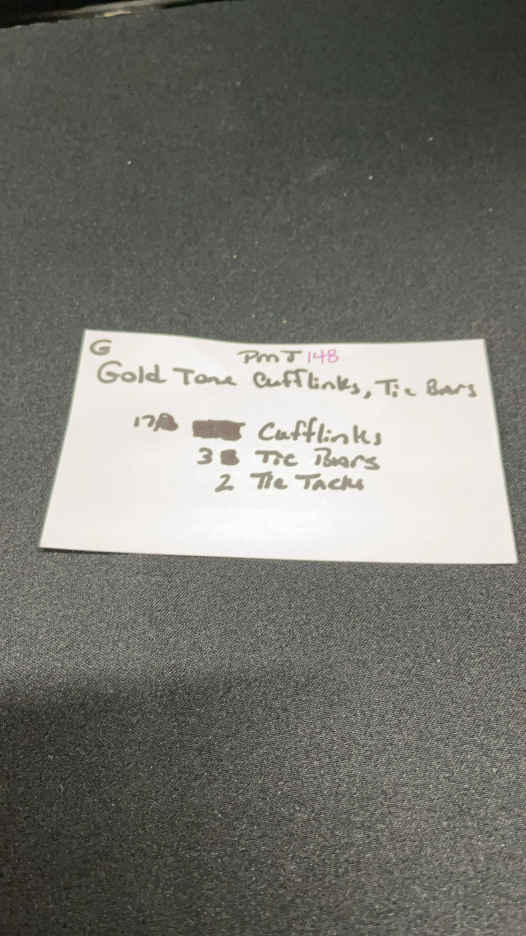 G
PMJ 148
Gold Tone Cufflinks, Tie Bars
17 Cufflinks
3 Tie Bars
2 Tie Tacks